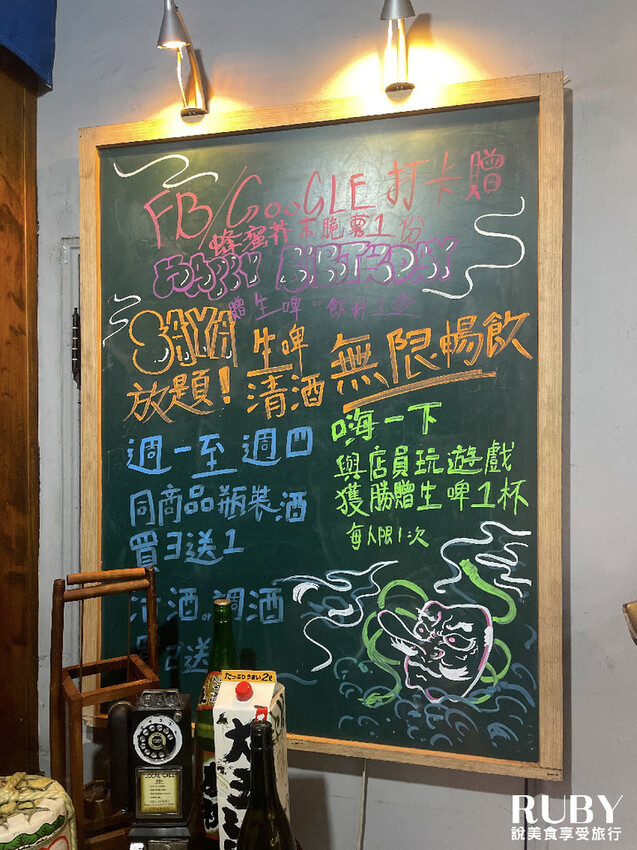 FB/GooGLE 打卡贈
蜂蜜芥末脆薯1份
HAPPY BIRTHDAY
贈生啤 or 飲料1杯
SAYA 生啤
放題! 清酒 無限暢飲
週一至週四
同商品瓶裝酒
買3送1
清酒 調酒
買2送
嗨一下
與店員玩遊戲
獲勝贈生啤1杯
每人限1次
たっぷりうまい2ℓ
LOCAL CALLS
RUBY
說美食享受旅行